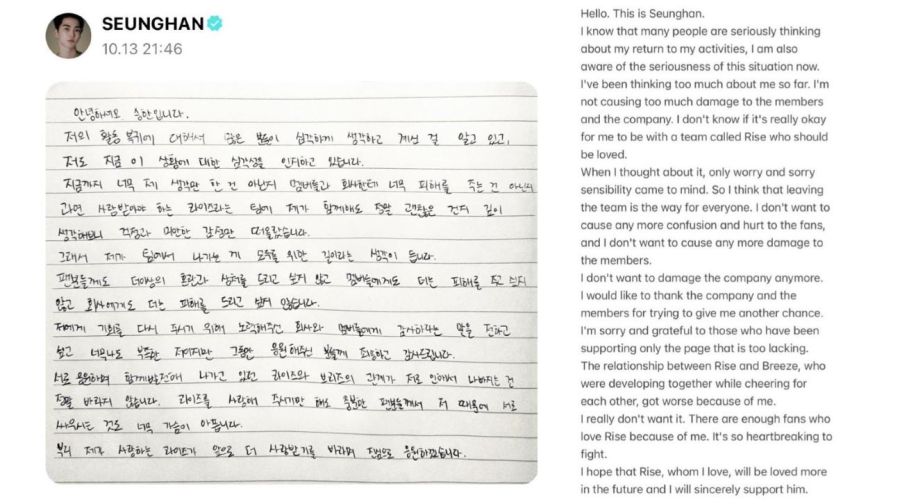 SEUNGHAN
10.13 21:46
안녕하세요 승한입니다.
저의 활동 복귀에 대해서 많은 분들이 심각하게 생각하고 계신 걸 알고 있고,
저도 지금 이 상황에 대한 심각성을 인지하고 있습니다.
지금까지 너무 제 생각만 한 건 아닌지 멤버들과 회사한테 너무 피해를 주는 건 아닌지
과연 사랑받아야 하는 라이즈라는 팀에 제가 함께해도 정말 괜찮은 건지 깊이
생각해보니 걱정과 미안한 감정만 떠올랐습니다.
그래서 제가 팀에서 나가는 게 모두를 위한 길이라는 생각이 듭니다.
팬분들께도 더이상의 혼란과 상처를 드리고 싶지 않고 멤버들에게도 더는 피해를 주고 싶지
않고 회사에게도 더는 피해를 드리고 싶지 않습니다.
저에게 기회를 다시 주시기 위해 노력해주신 회사와 멤버들에게 감사하다는 말을 전하고
싶고 너무나도 부족한 저이지만 그동안 응원해주신 분들께 죄송하고 감사드립니다.
서로 응원하며 함께 발전해 나가고 있던 라이즈와 브리즈의 관계가 저로 인해서 나빠지는 건
정말 바라지 않습니다. 라이즈를 사랑해 주시기만 해도 충분한 팬분들께서 저 때문에 서로
싸우시는 것도 너무 가슴이 아픕니다.
부디 제가 사랑하는 라이즈가 앞으로 더 사랑받기를 바라며 진심으로 응원하겠습니다.
Hello. This is Seunghan.
I know that many people are seriously thinking
about my return to my activities, I am also
aware of the seriousness of this situation now.
I've been thinking too much about me so far. I'm
not causing too much damage to the members
and the company. I don't know if it's really okay
for me to be with a team called Rise who should
be loved.
When I thought about it, only worry and sorry
sensibility came to mind. So I think that leaving
the team is the way for everyone. I don't want to
cause any more confusion and hurt to the fans,
and I don't want to cause any more damage to
the members.
I don't want to damage the company anymore.
I would like to thank the company and the
members for trying to give me another chance.
I'm sorry and grateful to those who have been
supporting only the page that is too lacking.
The relationship between Rise and Breeze, who
were developing together while cheering for
each other, got worse because of me.
I really don't want it. There are enough fans who
love Rise because of me. It's so heartbreaking to
fight.
I hope that Rise, whom I love, will be loved more
in the future and I will sincerely support him.